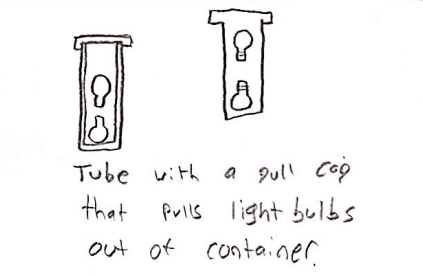 Tube with a pull cap
that pulls light bulbs
out of container.